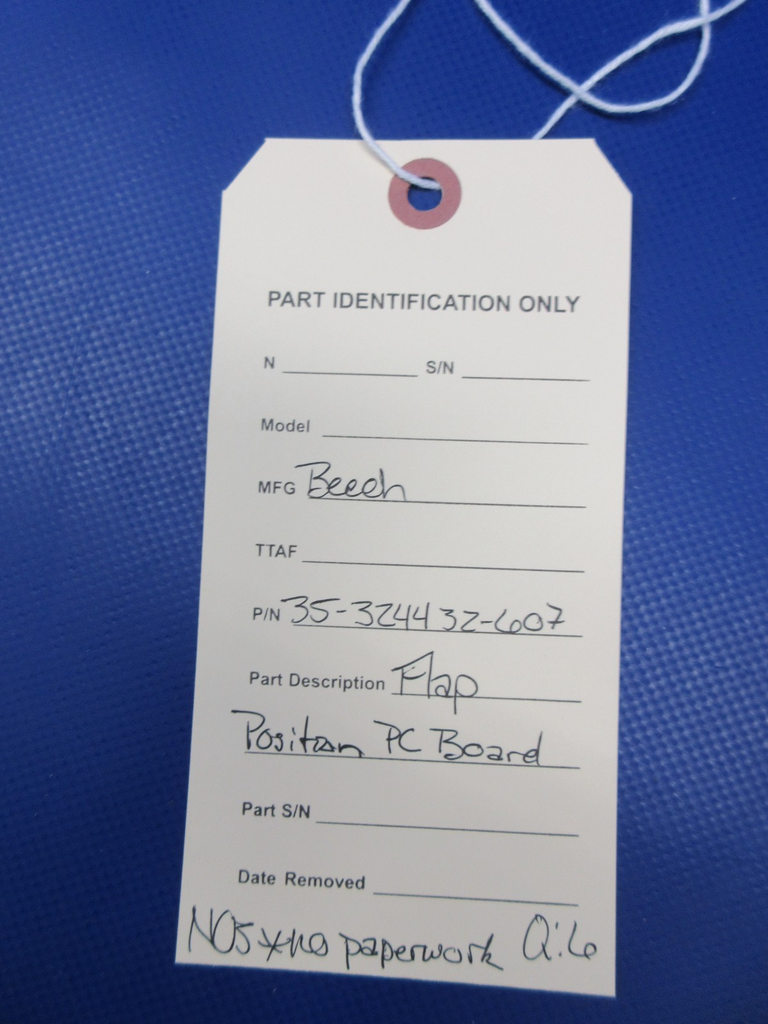 PART IDENTIFICATION ONLY
N S/N
Model
MFG Beech
TTAF
P/N 35-324432-607
Part Description Flap
Position PC Board
Part S/N
Date Removed
NOS *no paperwork Q:6